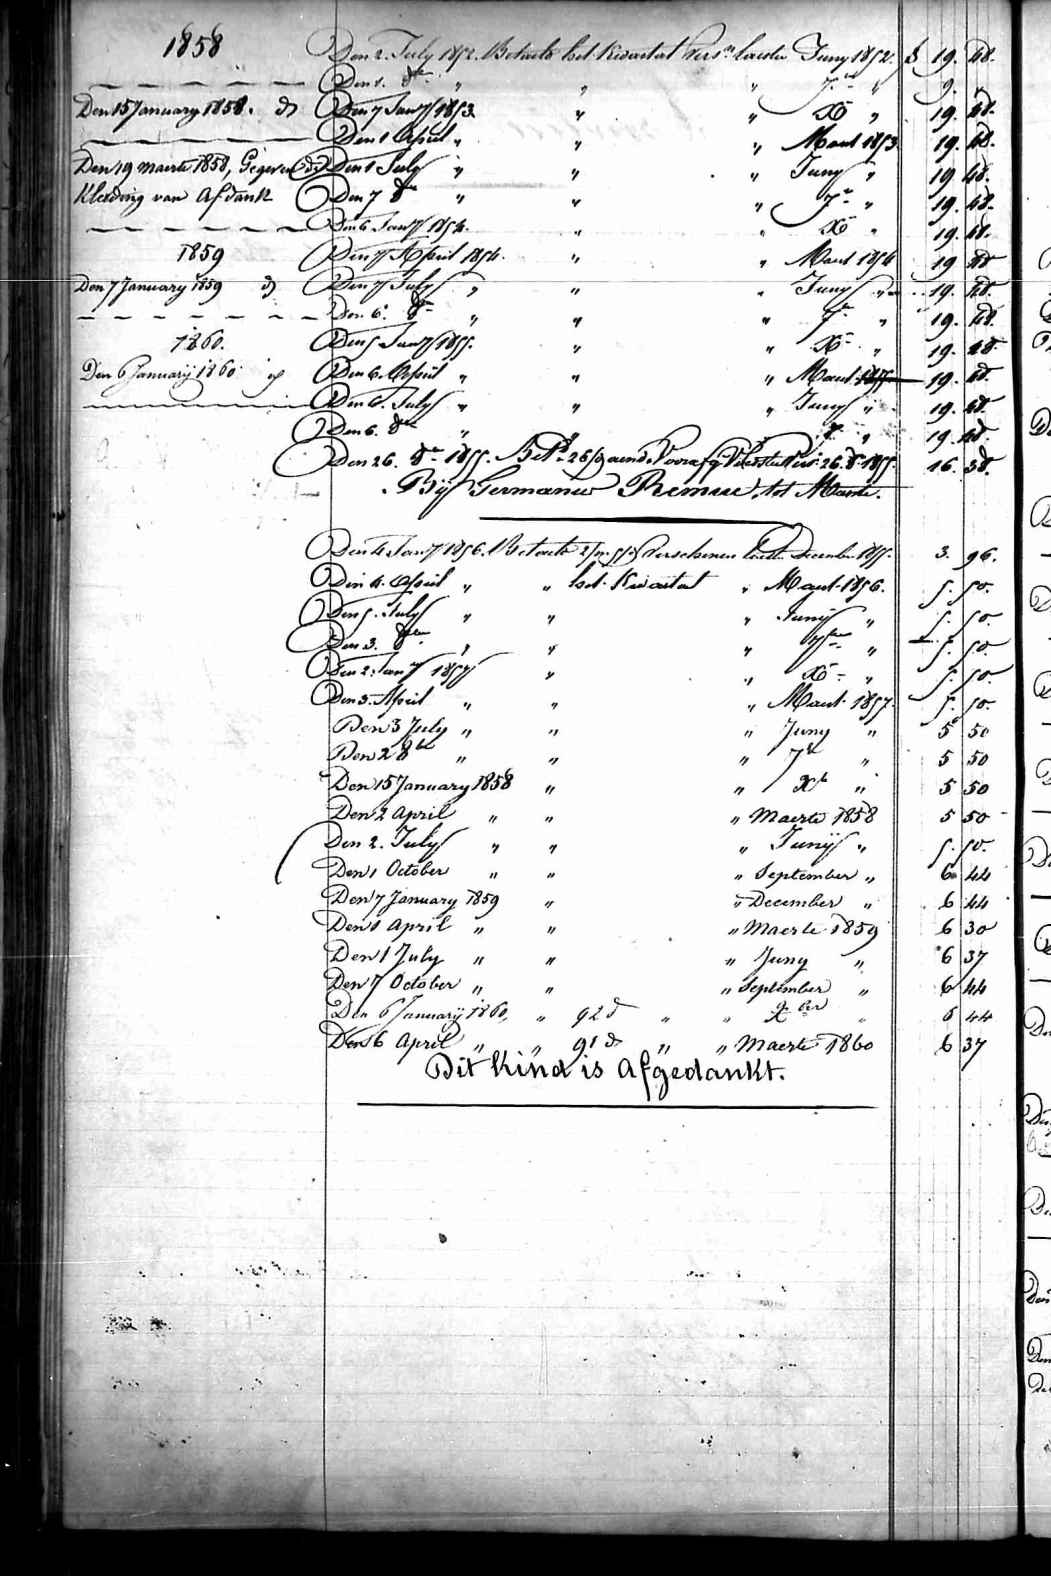 1858
Den 15 January 1858. d°
Den 19 Maerte 1858, Gegeven de
Kleeding van Afdank
1859
Den 7 January 1859 d°
1860.
Den 6 Januarij 1860
Den 2. July 1852. Betaelt het Kwartal Vers.n laeste Juny 1852. f 19. 48.
Den 1. 8re " " " 7re " 9. "
Den 7 Jan7 1853 " " Xre " 19. 48.
Den 1 April " " " Maert 1853 19. 48.
Den 1 July " " " Juny " 19 48.
Den 7 8re " " " 7re " 19. 48.
Den 6 Jan7 1854. " " Xre " 19. 48.
Den 7 April 1854. " " Maert 1854 19 48
Den 7 July " " " Juny " 19. 48.
Den 6. 8re " " " 7re " 19. 48.
Den 5 Jan7 1855. " " Xre " 19. 48.
Den 6. April " " " Maert 1855 19. 48.
Den 6. July " " " Juny " 19. 48.
Den 6. 8re " " " 7. " 19. 48.
Den 26. 8re 1855. 26. 8. 1855. 16. 38.
Bij Germanus tot
Den 4 Jan7 1856. Betaelt Verschenen laeste December 1855. 3. 96.
Den 4. April " " het Kwartal " Maert 1856. 5. 50.
Den 5. July " " " Junij " 5. 50.
Den 3. 8re " " " 7re " 5. 50.
Den 2. Jan7 1857 " " Xre " 5. 50.
Den 3. April " " " Maert 1857. 5. 50.
Den 3 July " " " Juny " 5 50
Den 2 8bre " " " 7b " 5 50
Den 15 January 1858 " " Xb " 5 50
Den 2 April " " " Maerte 1858 5 50
Den 2. July " " " Junij " 5. 50.
Den 1 October " " " September " 6 44
Den 7 January 1859 " " December " 6 44
Den 1 April " " " Maerte 1859 6 30
Den 1 July " " " Juny " 6 37
Den 7 October " " " September " 6 44
Den 6 Januarij 1860, " 92 d " " Xber " 6 44
Den 6 April " " 91 d " " Maerte 1860 6 37
Dit kind is Afgedankt.